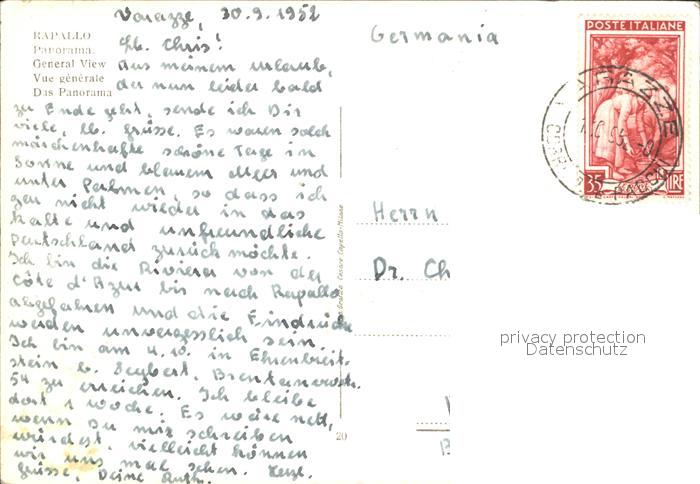 Varazze, 30.9.1952
RAPALLO
Panorama.
General View
Vue générale
Das Panorama
Lb. Chris!
Aus meinem Urlaub,
der nun leider bald
zu Ende geht, sende ich Dir
viele, lb. Grüsse. Es waren solch
märchenhafte schöne Tage in
Sonne und blauem Meer und
unter Palmen, so dass ich
gar nicht wieder in das
kalte und unfreundliche
Deutschland zurück möchte.
Ich bin die Riviera von der
Côte d'Azur bis nach Rapallo
abgefahren und die Eindrücke
werden unvergesslich sein.
Ich bin am 4.10. in Ehrenbreit-
stein b. Seybert, Brentanostr.
54 zu erreichen. Ich bleibe
dort 1 Woche. Es wäre nett,
wenn Du mir schreiben
würdest, vielleicht können
wir uns mal sehen. Herzl.
Grüsse, Deine Ruth.
Germania
POSTE ITALIANE
35 LIRE
VARAZZE
Herrn
Dr. Ch
Cesare Capello - Milano
20
privacy protection
Datenschutz